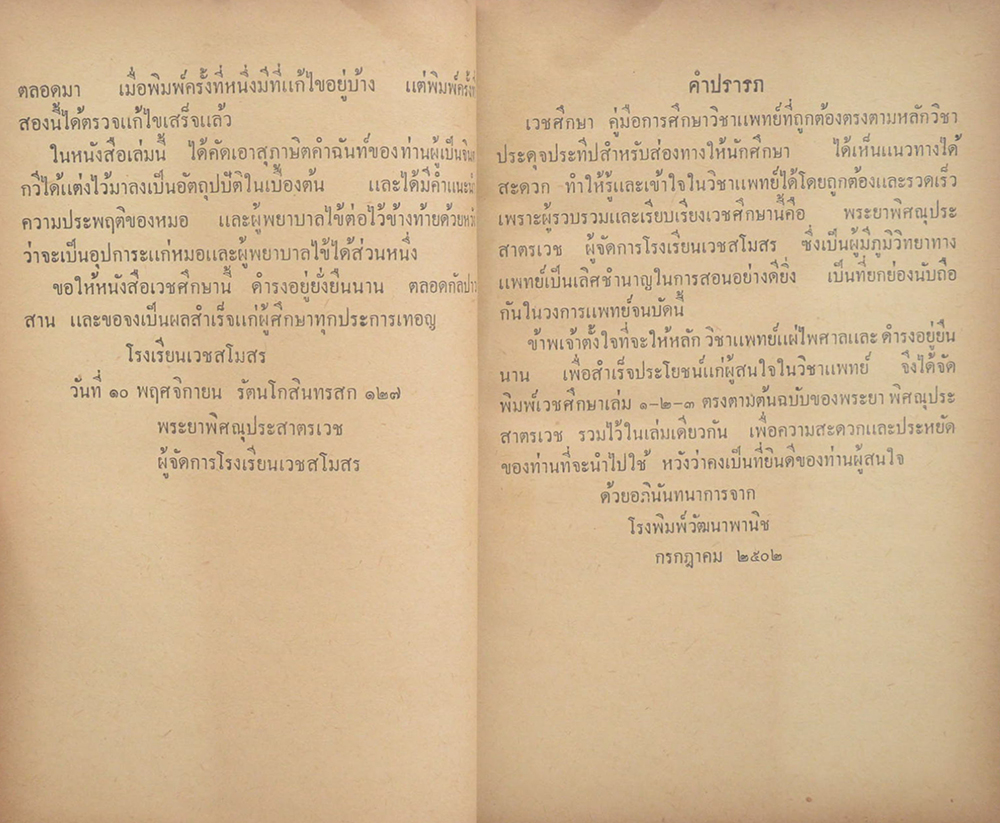 ตลอดมา เมื่อพิมพ์ครั้งที่หนึ่งมีที่แก้ไขอยู่บ้าง แต่พิมพ์ครั้งที่
สองนี้ได้ตรวจแก้ไขเสร็จแล้ว
ในหนังสือเล่มนี้ ได้คัดเอาสุภาษิตคำฉันท์ของท่านผู้เป็น
กวีได้แต่งไว้มาลงเป็นอัตถุปปัติในเบื้องต้น และได้มีคำแนะนำ
ความประพฤติของหมอ และผู้พยาบาลไข้ต่อไว้ข้างท้ายด้วยหวัง
ว่าจะเป็นอุปการะแก่หมอและผู้พยาบาลไข้ได้ส่วนหนึ่ง
ขอให้หนังสือเวชศึกษานี้ ดำรงอยู่ยั่งยืนนาน ตลอดกัลปา
สาน และขอจงเป็นผลสำเร็จแก่ผู้ศึกษาทุกประการเทอญ
โรงเรียนเวชสโมสร
วันที่ ๑๐ พฤศจิกายน รัตนโกสินทรสก ๑๒๗
พระยาพิศณุประสาตรเวช
ผู้จัดการโรงเรียนเวชสโมสร
คำปรารภ
เวชศึกษา คู่มือการศึกษาวิชาแพทย์ที่ถูกต้องตรงตามหลักวิชา
ประดุจประทีปสำหรับส่องทางให้นักศึกษา ได้เห็นแนวทางได้
สะดวก ทำให้รู้และเข้าใจในวิชาแพทย์ได้โดยถูกต้องและรวดเร็ว
เพราะผู้รวบรวมและเรียบเรียงเวชศึกษานี้คือ พระยาพิศณุประ
สาตรเวช ผู้จัดการโรงเรียนเวชสโมสร ซึ่งเป็นผู้มีภูมิวิทยาทาง
แพทย์เป็นเลิศชำนาญในการสอนอย่างดียิ่ง เป็นที่ยกย่องนับถือ
กันในวงการแพทย์จนบัดนี้
ข้าพเจ้าตั้งใจที่จะให้หลัก วิชาแพทย์แผ่ไพศาลและ ดำรงอยู่ยืน
นาน เพื่อสำเร็จประโยชน์แก่ผู้สนใจในวิชาแพทย์ จึงได้จัด
พิมพ์เวชศึกษาเล่ม ๑-๒-๓ ตรงตามต้นฉบับของพระยา พิศณุประ
สาตรเวช รวมไว้ในเล่มเดียวกัน เพื่อความสะดวกและประหยัด
ของท่านที่จะนำไปใช้ หวังว่าคงเป็นที่ยินดีของท่านผู้สนใจ
ด้วยอภินันทนาการจาก
โรงพิมพ์วัฒนาพานิช
กรกฎาคม ๒๕๐๒